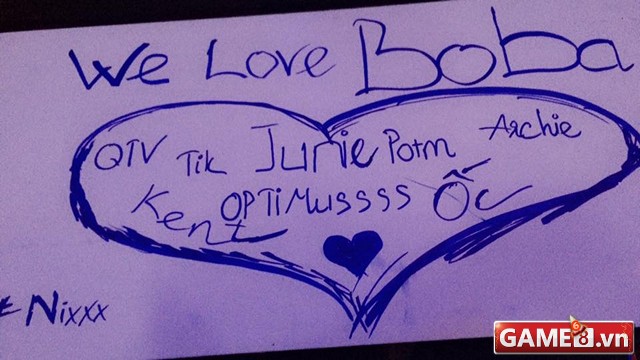 We Love Boba
QTV Tik Junie Potm Archie
Kent OPTiMussss Ốc
Nixxx
GAME8.vn